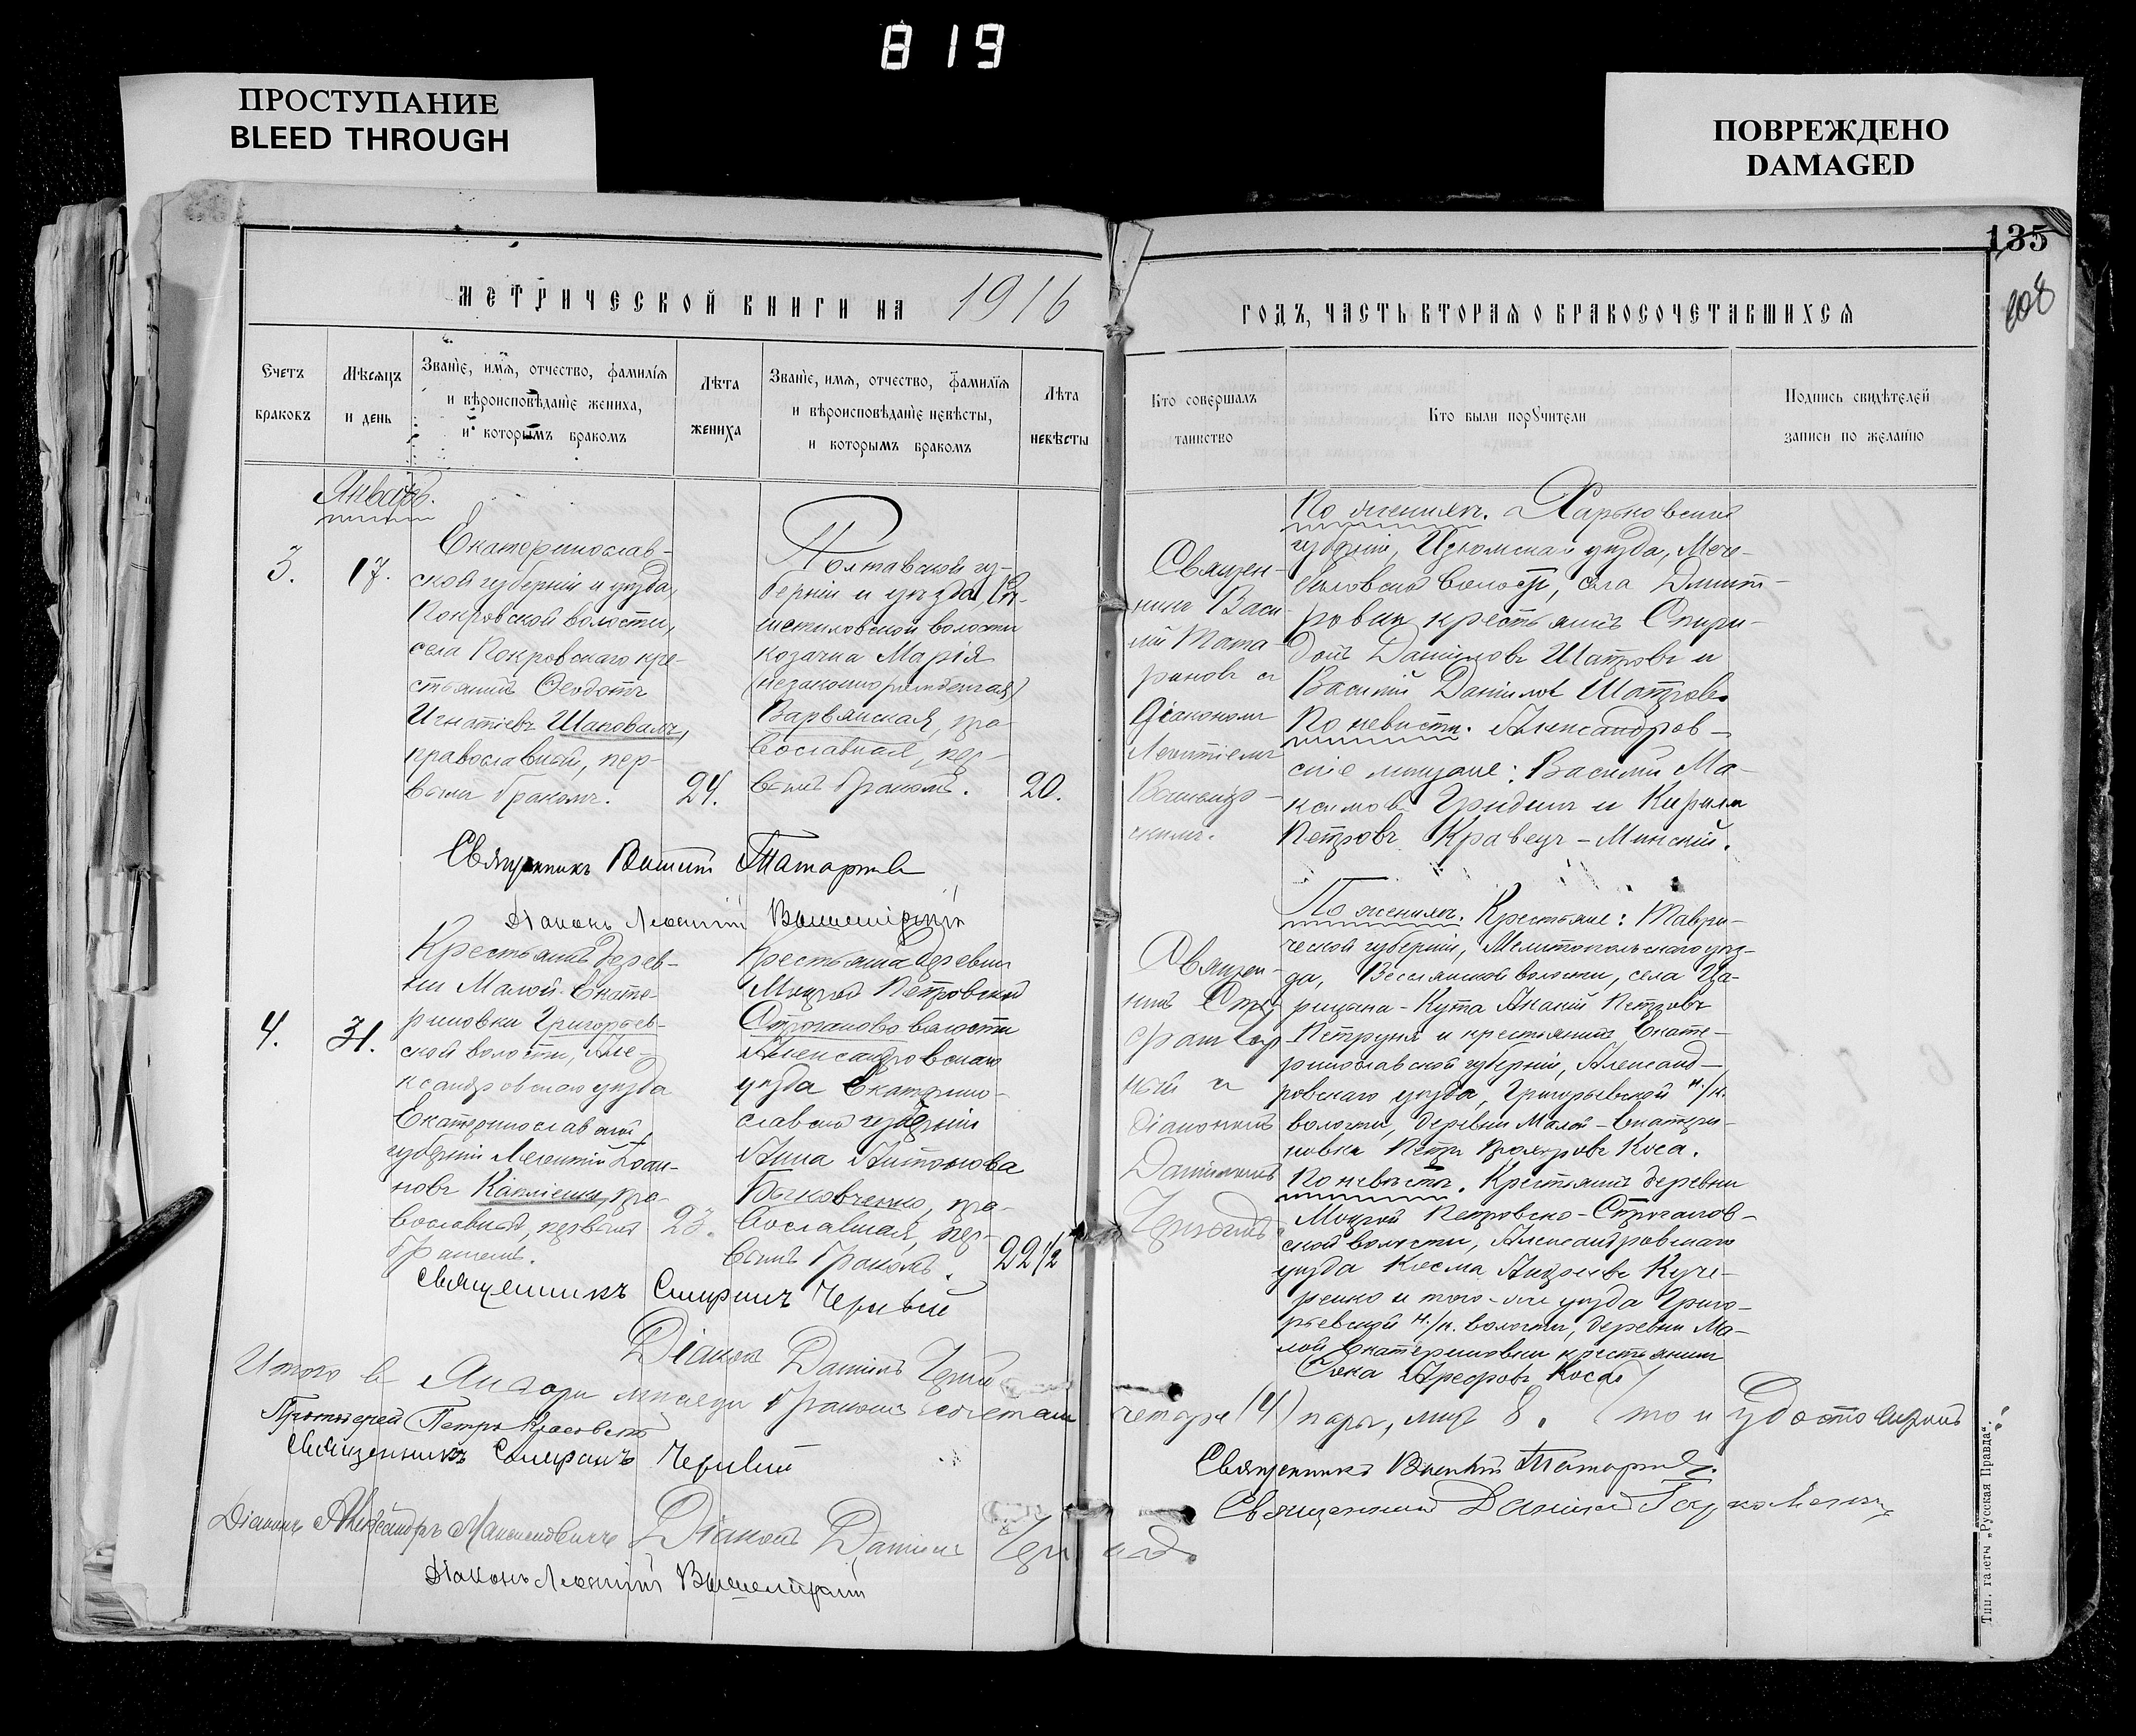 819
ПРОСТУПАНИЕ
BLEED THROUGH
ПОВРЕЖДЕНО
DAMAGED
135
208
МЕТРИЧЕСКОЙ КНИГИ НА 1916
ГОДЪ, ЧАСТЬ ВТОРАЯ О БРАКОСОЧЕТАВШИХСЯ
Счетъ
браковъ
Мѣсяцъ
и день
Званіе, имя, отчество, фамилія
и вѣроисповѣданіе жениха,
и которымъ бракомъ
Лѣта
жениха
Званіе, имя, отчество, фамилія
и вѣроисповѣданіе невѣсты,
и которымъ бракомъ
Лѣта
невѣсты
Кто совершалъ
таинство
Кто были поручители
Подпись свидѣтелей
записи по желанію
Январь.
3.
17.
Екатеринослав-
ской губерніи и уѣзда,
Покровской волости,
села Покровскаго кре-
стьянинъ Ѳеодотъ
Игнатіевъ Шаповалъ,
православный, пер-
вымъ бракомъ.
24.
Полтавской гу-
берніи и уѣзда,
волости
козачка Марія
(незаконнорожденная)
Варвянская, пра-
вославная, пер-
вымъ бракомъ.
20.
Священ-
никъ Васи-
лій Тата-
риновъ съ
діакономъ
Леонтіемъ
По женихѣ. Харьковской
губерніи, Изюмскаго уѣзда, Мече-
биловской волости, села Дмит-
ровки крестьянинъ Спири-
донъ Даниловъ Шатровъ и
Василій Даниловъ Шатровъ.
По невѣстѣ. Александров-
скіе мещане: Василій Ма-
ксимовъ Гридинъ и Кириллъ
Петровъ Кравецъ-Минскій.
Священникъ Василій Татариновъ
Діаконъ Леонтій
4.
31.
Крестьянинъ дерев-
ни Малой-Екате-
риновки Григорьев-
ской волости, Але-
ксандровскаго уѣзда
Екатеринославской
губерніи Леонтій Іоан-
новъ, пра-
вославный, первымъ
бракомъ.
23.
Крестьянка деревни
Мокрой Петровской
Строганово волости
Александровскаго
уѣзда Екатерино-
славской губерніи
Анна Антонова
Бычковченко, пра-
вославная, пер-
вымъ бракомъ.
22 1/2
Священ-
никъ
и
діакономъ
Даніиломъ
По женихѣ. Крестьяне: Таври-
ческой губерніи, Мелитопольскаго уѣз-
да, Веселянской волости, села Ца-
рицына-Кута Акакій Петровъ
Петруня и крестьянинъ Екате-
ринославской губерніи, Александ-
ровскаго уѣзда, Григорьевской н./н.
волости, деревни Малой-Екатери-
новки Петръ Коса.
По невѣстѣ. Крестьянинъ деревни
Мокрой Петровско-Строганов-
ской волости, Александровскаго
уѣзда Косма Андреевъ Куче-
ренко и того-же уѣзда Григо-
рьевской н./н. волости, деревни Ма-
лой Екатериновки крестьянинъ
Коса.
Священникъ Червый
Діаконъ Даніилъ
Итого въ Январѣ мѣсяцѣ бракомъ сочетались четыре (4) пары, лицъ 8. Что и удостовѣряемъ
Протоіерей Петръ
Священникъ Червый
Священникъ Василій Татариновъ.
Священникъ Даніилъ
Діаконъ Александръ Діаконъ Даніилъ
Діаконъ Леонтій
Тип. газеты „Русская Правда“.